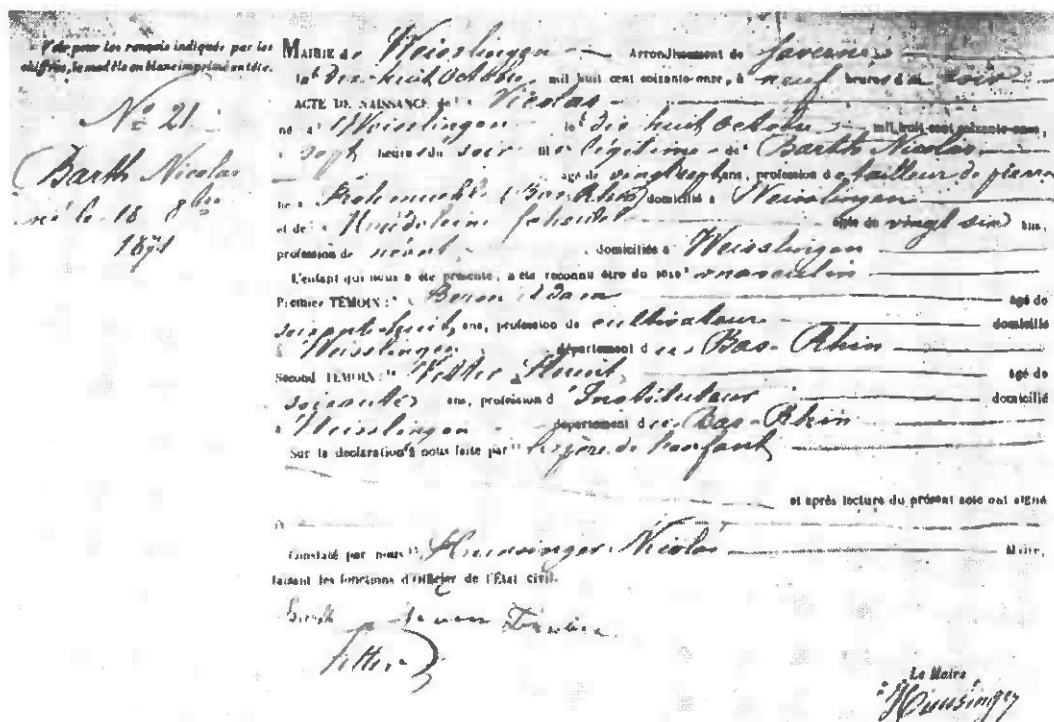 Voir pour les renvois indiqués par les
chiffres, le modèle en blanc imprimé en tête.
N° 21
Barth Nicolas
né le 18 8bre
1871
MAIRIE de Weisslingen Arrondissement de Saverne
le dix-huit Octobre mil huit cent soixante-onze, à neuf heures du soir
ACTE DE NAISSANCE de Nicolas
né à Weisslingen le dix huit Octobre mil huit cent soixante-onze,
à sept heures du soir fils légitime de Barth Nicolas
âgé de vingt sept ans, profession de tailleur de pierre
né à Frohmuhl (Bas-Rhin) domicilié à Weisslingen
et de Madeleine âgée de vingt six ans,
profession de néant domiciliée à Weisslingen
L'enfant qui nous a été présenté, a été reconnu être du sexe masculin
Premier TÉMOIN : Adam âgé de
ans, profession de cultivateur domicilié
à Weisslingen département du Bas-Rhin
Second TÉMOIN : Florent âgé de
soixante ans, profession d'Instituteur domicilié
à Weisslingen département du Bas-Rhin
Sur la déclaration à nous faite par le père de l'enfant
et après lecture du présent acte ont signé
Constaté par nous Huntsinger Nicolas Maire,
faisant les fonctions d'Officier de l'État civil.
Barth
Le Maire